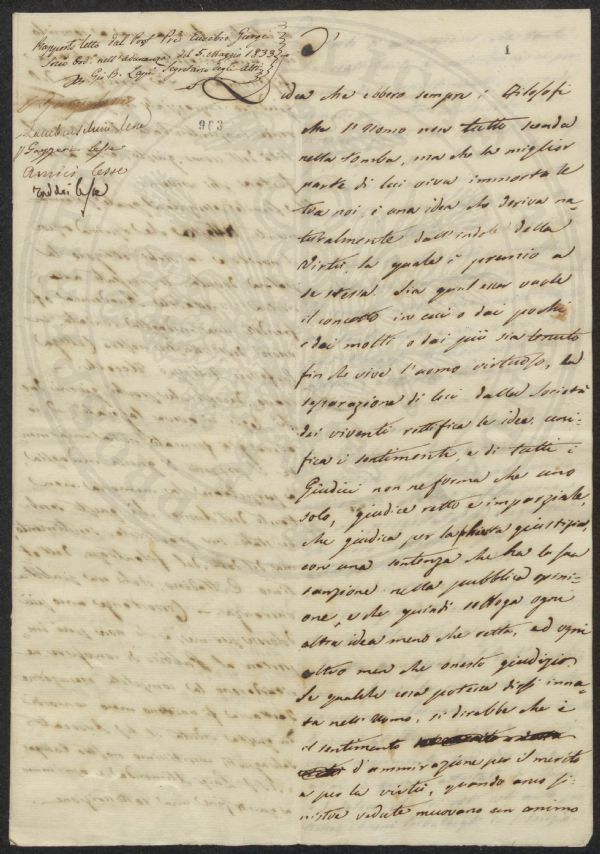 Rapporto letto dal Prof. Pre. Eusebio Giorgi
Socio Ord. nell'adunanza del 5. Maggio 1833
Gio. B. Segretario degli Atti
1
963
lesse
Gazzeri lesse
Amici lesse
Taddei lesse
L'
idea che ebbero sempre i Filosofi
che l'uomo non tutto scenda
nella tomba, ma che la miglior
parte di lui viva immortale
tra noi, è una idea che deriva na-
turalmente dall'indole della
Virtù, la quale è premio a
se stessa. Sia qual esser vuole
il concetto in cui o dai pochi
o dai molti o dai più sia tenuto
finchè vive l'uomo virtuoso, la
separazione di lui dalla Società
dei viventi rettifica le idee, uni-
fica i sentimenti, e di tutti i
Giudici non ne forma che uno
solo, giudice retto e imparziale,
che giudica per la giustizia,
con una sentenza che ha la sua
sanzione nella pubblica opini-
one, e che quindi soffoga ogni
altra idea meno che retta, ad ogni
altro men che onesto giudizio
Se qualche cosa potesse dirsi inna-
ta nell'uomo, si direbbe che è
il sentimento
d'ammirazione per il merito
e per la virtù, quando anco si-
nistre vedute muovano un animo